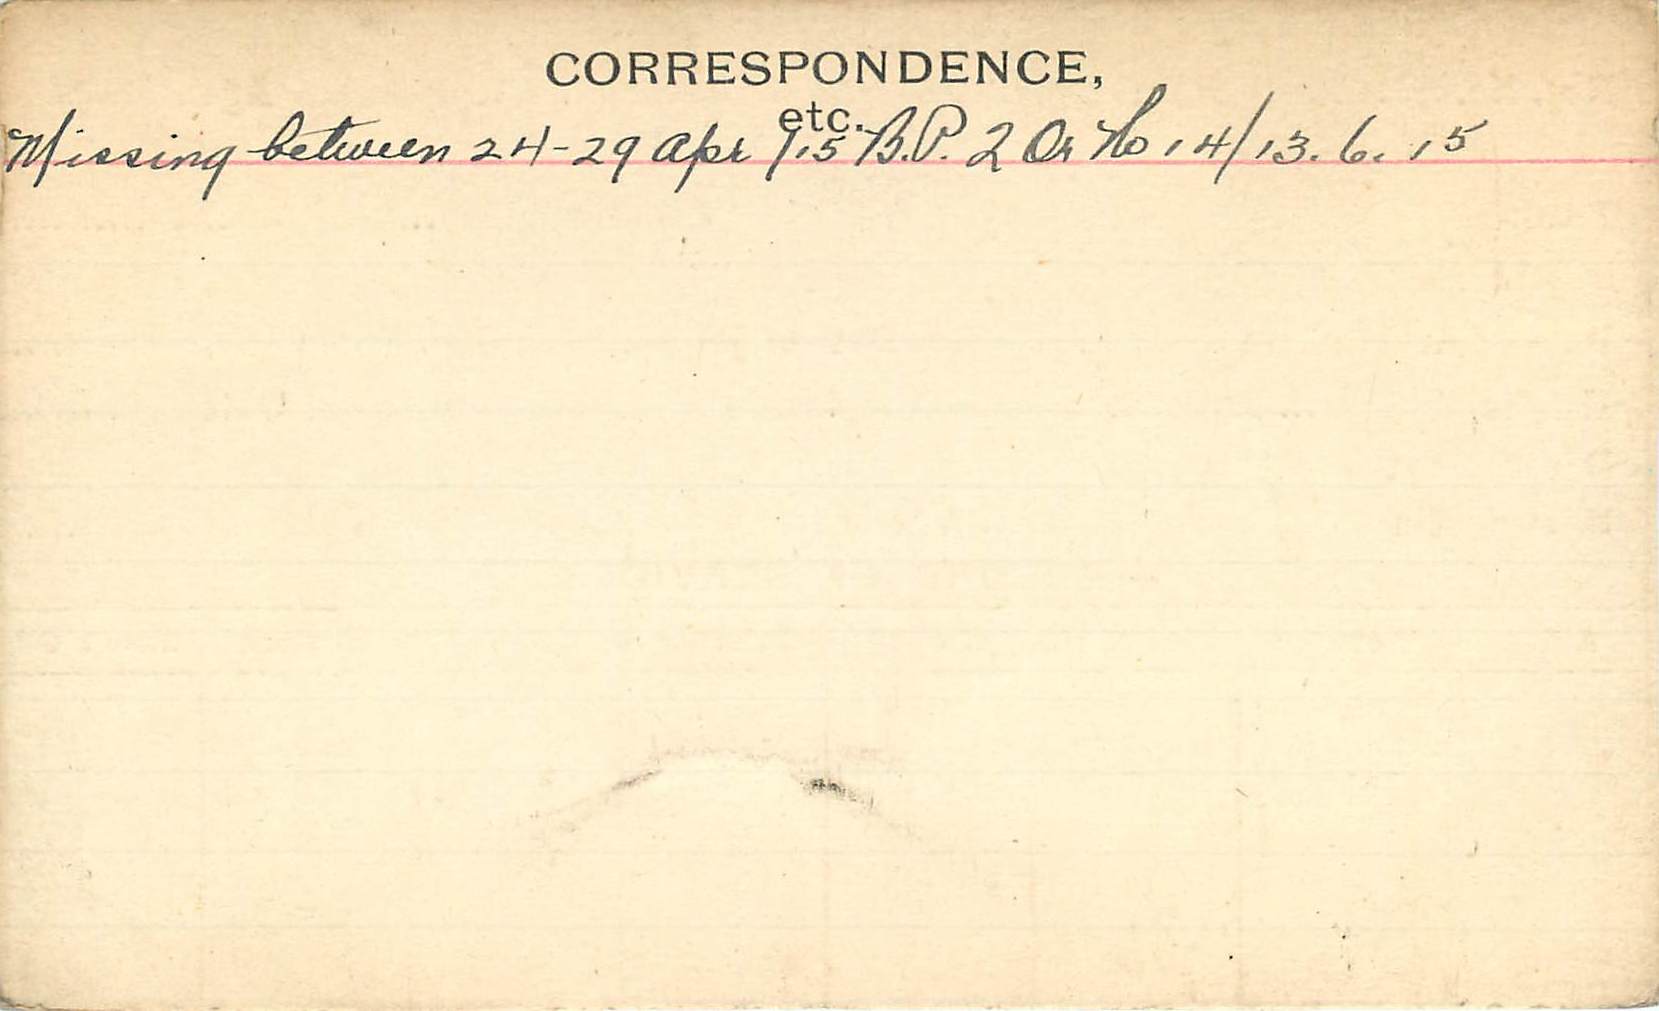 CORRESPONDENCE,
etc.
Missing between 24-29 Apr /15 B.P. 2 Or No 14/13.6.15